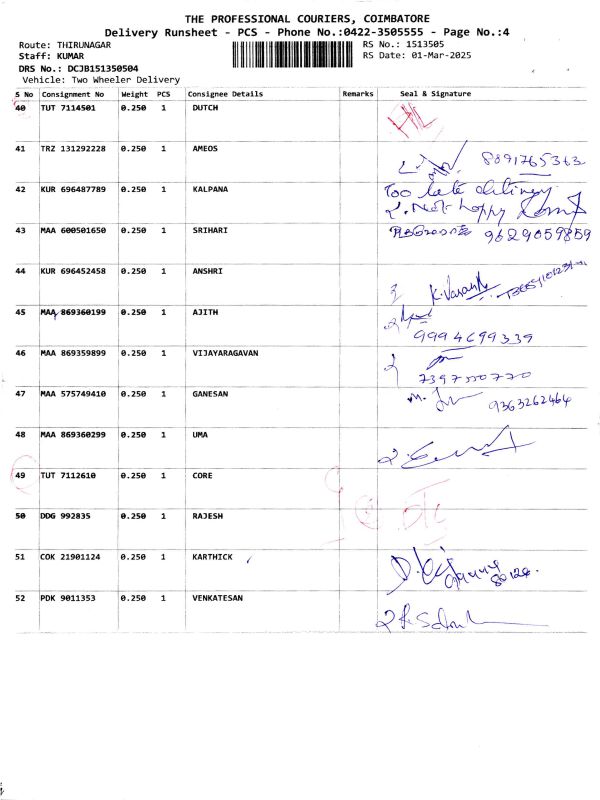 THE PROFESSIONAL COURIERS, COIMBATORE
Delivery Runsheet - PCS - Phone No.:0422-3505555 - Page No.:4
Route: THIRUNAGAR
RS No.: 1513505
Staff: KUMAR
RS Date: 01-Mar-2025
DRS No.: DCJB151350504
Vehicle: Two Wheeler Delivery
S No Consignment No Weight PCS Consignee Details Remarks Seal & Signature
40 TUT 7114501 0.250 1 DUTCH
41 TRZ 131292228 0.250 1 AMEOS 8891765363
42 KUR 696487789 0.250 1 KALPANA Too late delivery
Not happy
43 MAA 600501650 0.250 1 SRIHARI 9629059859
44 KUR 696452458 0.250 1 ANSHRI
45 MAA 869360199 0.250 1 AJITH
9994699339
46 MAA 869359899 0.250 1 VIJAYARAGAVAN
7397550770
47 MAA 575749410 0.250 1 GANESAN 9363262464
48 MAA 869360299 0.250 1 UMA
49 TUT 7112610 0.250 1 CORE
50 DDG 992835 0.250 1 RAJESH
51 COK 21901124 0.250 1 KARTHICK
52 PDK 9011353 0.250 1 VENKATESAN